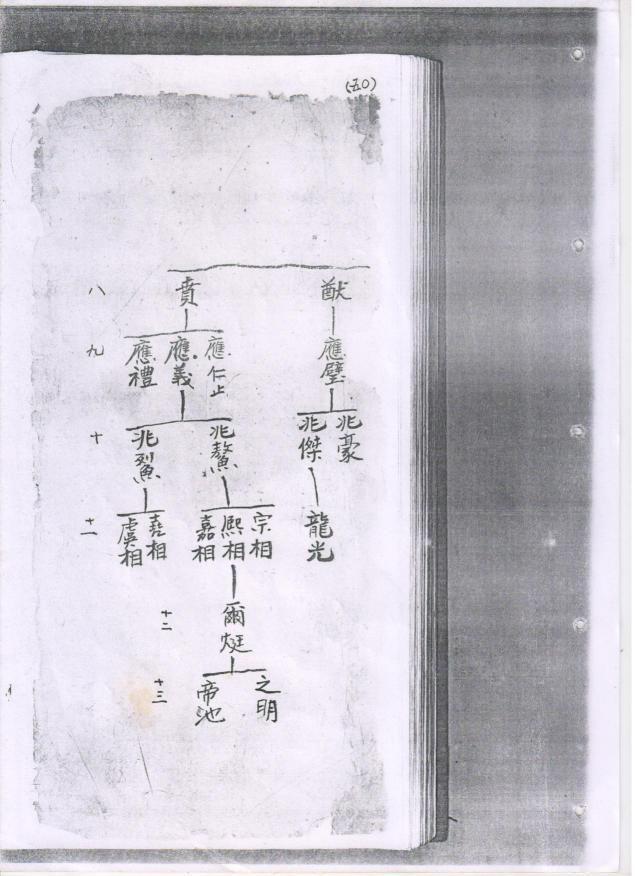 (五〇)
八
猷
賁
九
應璧
應仁止
應義
應禮
十
兆豪
兆傑
兆鰲
兆鴷
十一
龍光
宗相
熙相
嘉相
堯相
虞相
十二
爾烶
十三
之明
帝池